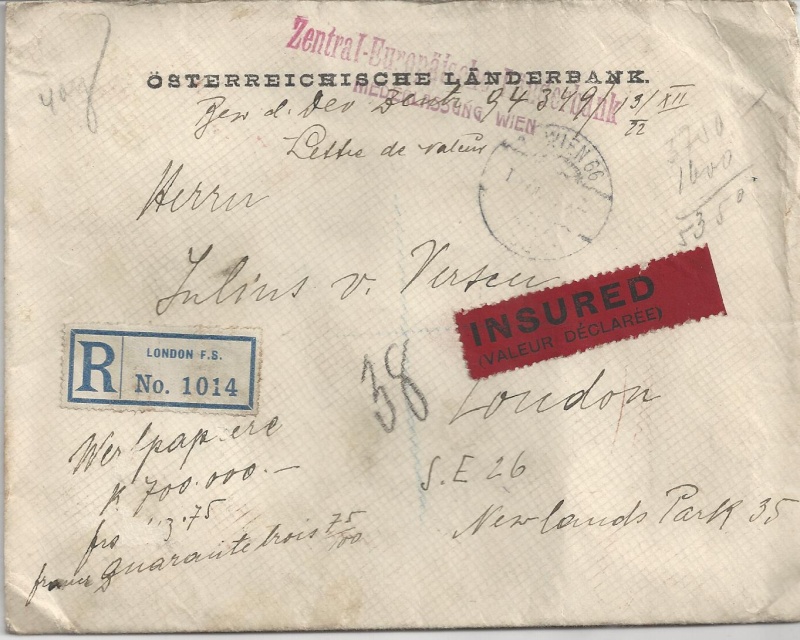 Zentral-Europäische Länderbank
ÖSTERREICHISCHE LÄNDERBANK.
NIEDERLASSUNG WIEN
Bew. d. Dev. 94349/ 13/XII 22
Lettre de valeur
WIEN 66
Herrn
3750
1600
5350
Julius v. Versen
INSURED
(VALEUR DÉCLARÉE)
R
LONDON F.S.
No. 1014
38
London
S.E 26
Newlands Park 35
Wertpapiere
K 700.000.—
frs 43.75
francs quarante trois 75/100